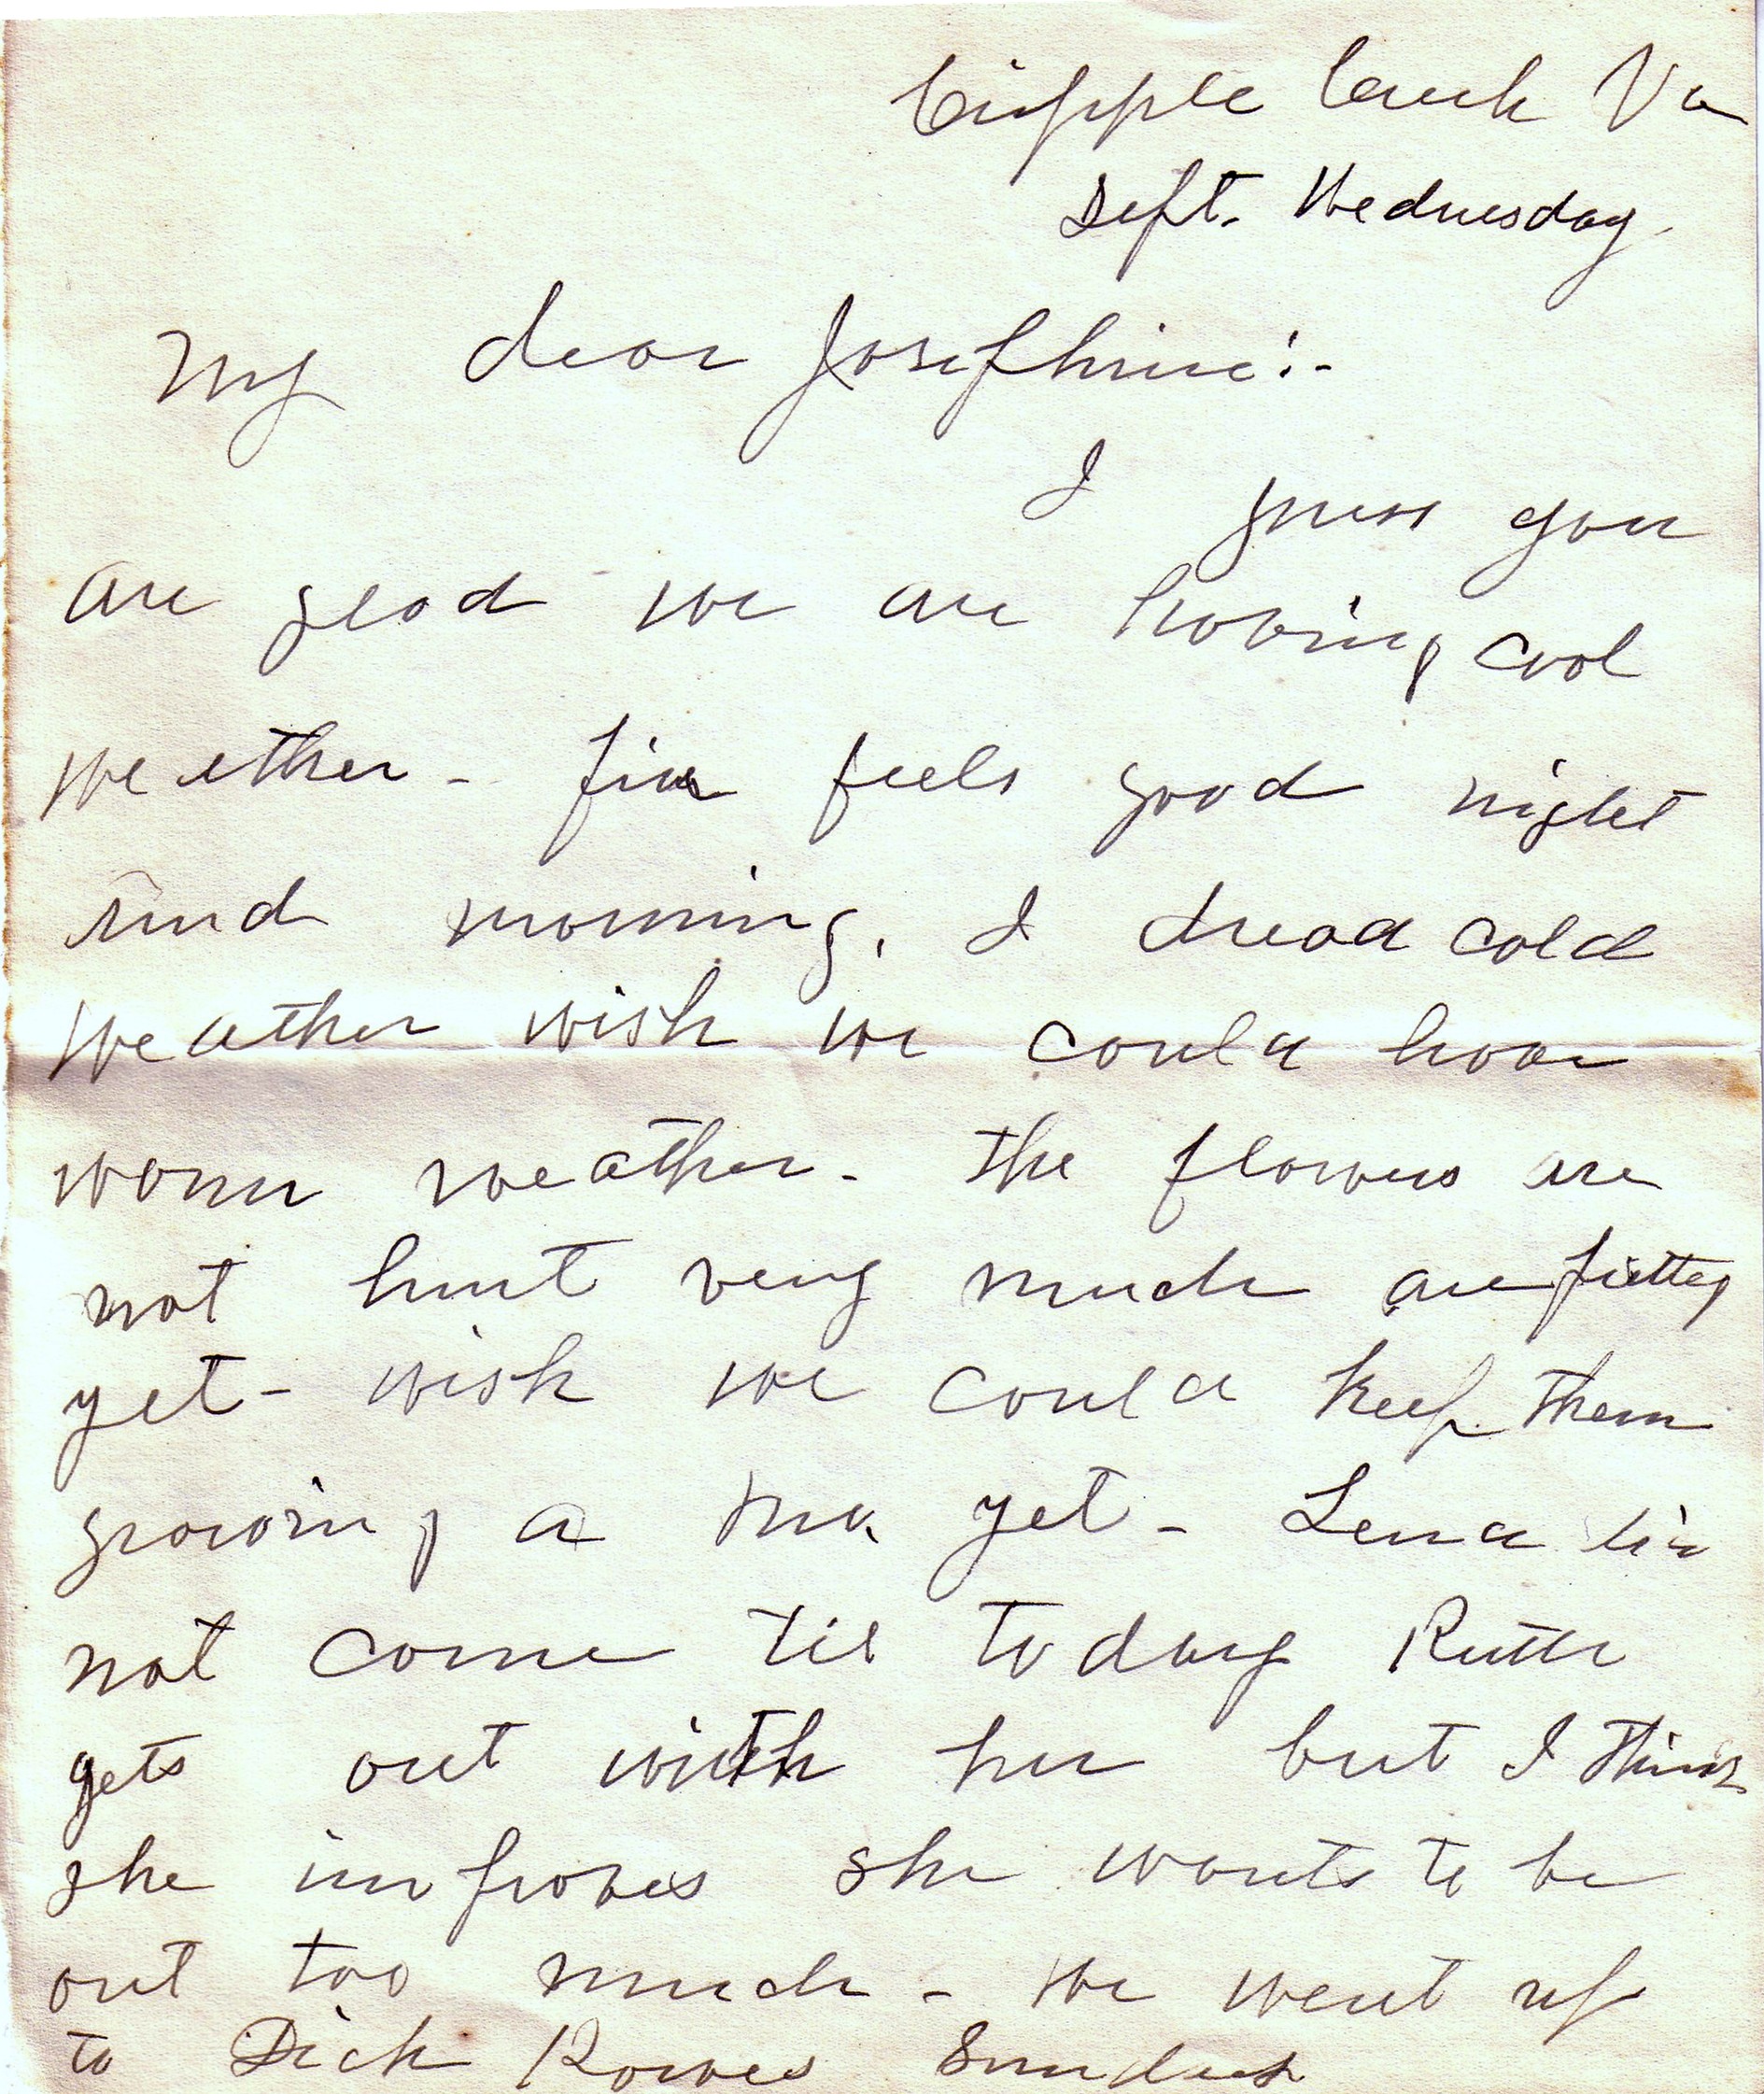 Cripple Creek Va
Sept. Wednesday.
My dear Josephine:-
I guess you
are glad we are having cool
weather - fire feels good night
and morning. I dread cold
weather wish we could have
warm weather - the flowers are
not hurt very much are pretty
yet - wish we could keep them
growing a mo. yet - Lena
not come til today Ruth
gets out with her but I think
she improves she wants to be
out too much - we went up
to Dick Rowes Sunday